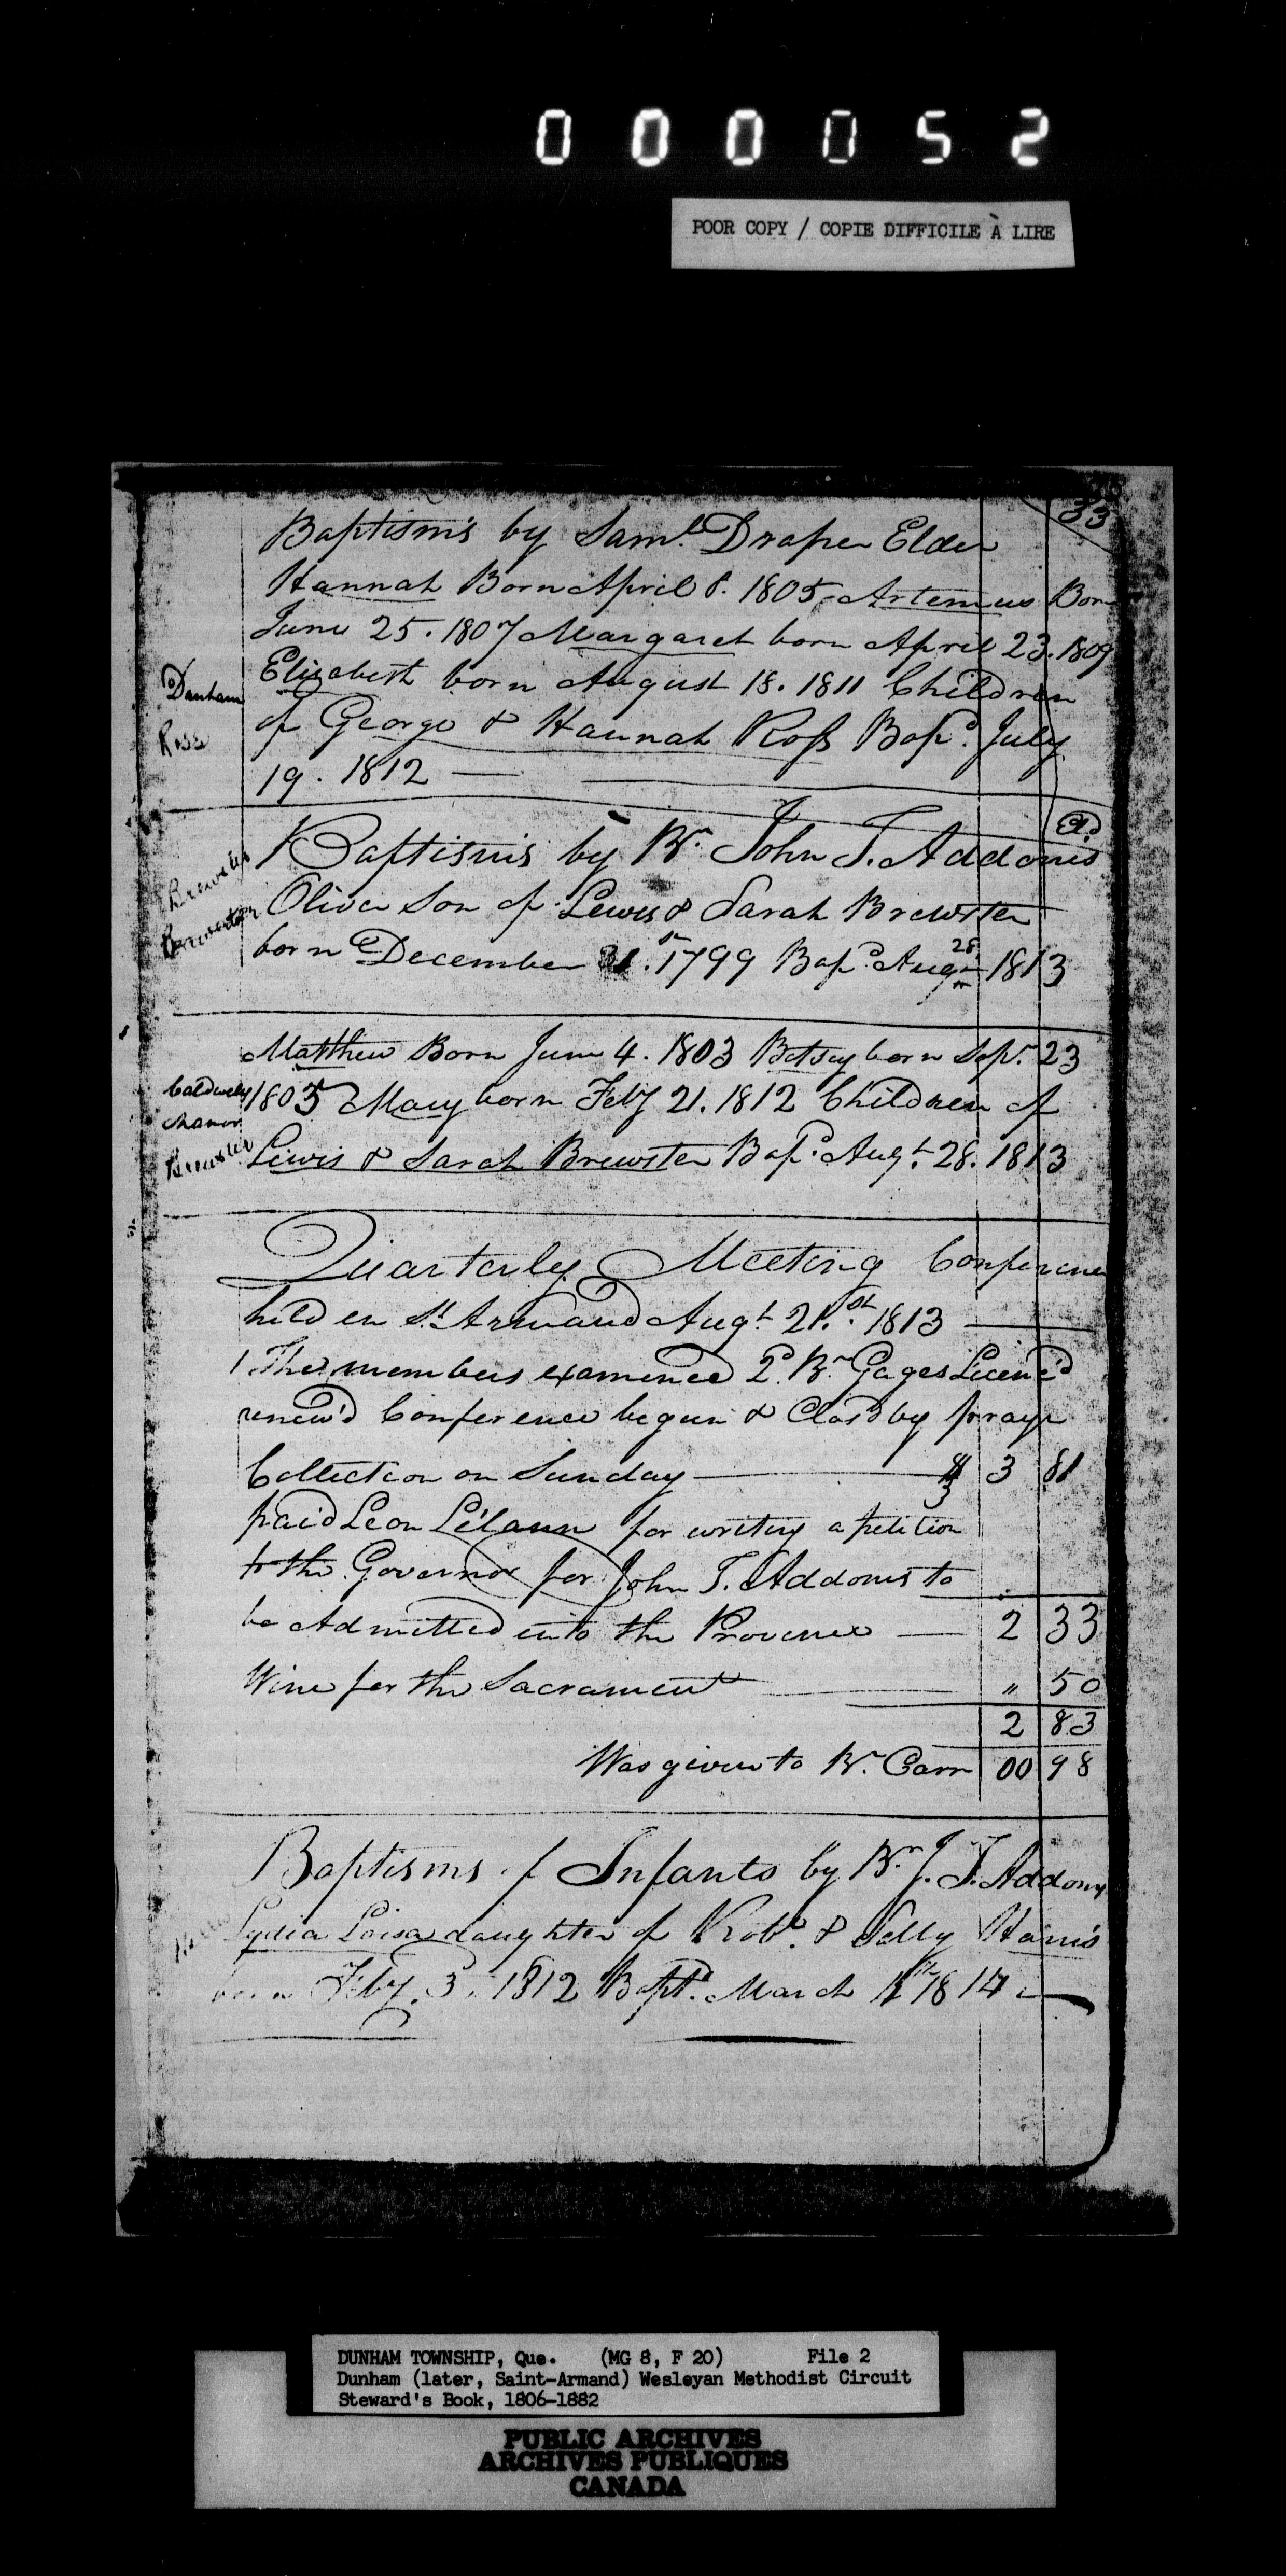 000052
POOR COPY / COPIE DIFFICILE À LIRE
33
Baptisms by Saml. Draper Elder
Hannah Born April 8. 1805, Artemus Born
June 25. 1807 Margaret born April 23. 1809
Elizabeth born August 18. 1811 Children
of George & Hannah Ross Bapd. July
19. 1812
Dunham
Ross
Baptisms by Br. John T. Addoms
Oliver Son of Lewis & Sarah Brewster
born December 31. 1799 Bapd. Augt 28 1813
Brewster
Matthew Born June 4. 1803 Betsey born Sepr. 23
1805 Mary born Feby 21. 1812 Children of
Lewis & Sarah Brewster Bapd. Augt. 28. 1813
Caldwels
Manor
Brewster
Quarterly Meeting Conference
held en St. Armand Augt. 21st. 1813
1 The members examined 2d. Br. Gages Licenc'd
renew'd Conference begun & Closd by prayr
Collection on Sunday $ 3 81
paid Leon for writing a petition
to the Governor for John T. Addoms to
be Admitted into the Provence 2 33
Wine for the Sacrament " 50
2 83
Was given to Br. Carr 00 98
Baptisms of Infants by Br. J. T. Addoms
Lydia Loisa daughter of Robt. & Selly Harris
born Feby. 3. 1812 Bapt. March 1814
DUNHAM TOWNSHIP, Que. (MG 8, F 20) File 2
Dunham (later, Saint-Armand) Wesleyan Methodist Circuit
Steward's Book, 1806-1882
PUBLIC ARCHIVES
ARCHIVES PUBLIQUES
CANADA